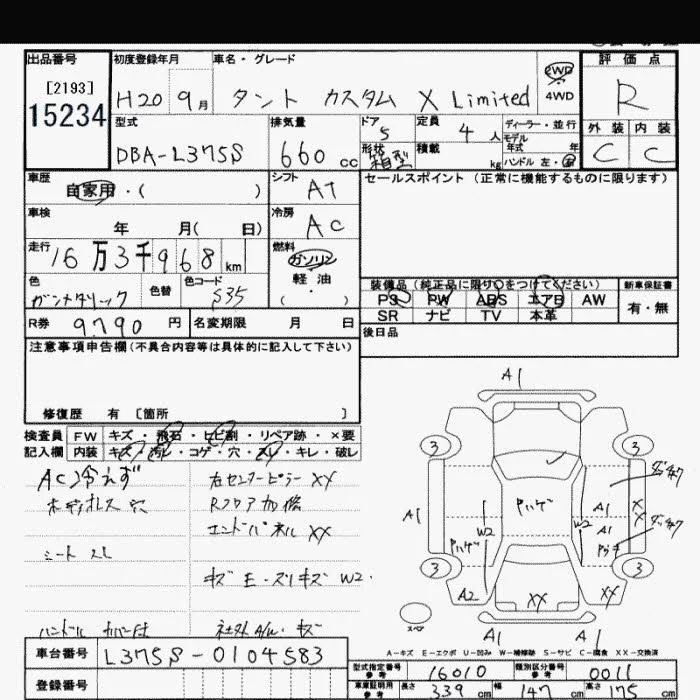 出品番号 初度登録年月 車名・グレード 評価点
[2193] 2WD
15234 H20 9月 タント カスタム X Limited 4WD R
型式 排気量 ドア 定員 ディーラー・並行 外装 内装
DBA-L375S 660cc 5 4人 モデル年式 年 C C
形状 箱型 積載 kg ハンドル 左・右
車歴 シフト セールスポイント (正常に機能するものに限ります)
自家用・( ) AT
車検 冷房
年 月( 日) AC
走行 燃料
16万3千968km ガソリン
軽油
( )
色 色替 色コード 装備品(純正品に限り○をつけてください) 新車保証書
ガンメタリック S35 PS PW ABS エアB AW 有・無
SR ナビ TV 本革
R券 9790円 名変期限 月 日 後日品
注意事項申告欄(不具合内容等は具体的に記入して下さい)
修復歴 有 [箇所 ]
検査員 FW キズ・飛石・ヒビ割・リペア跡・×要
記入欄 内装 キズ・汚レ・コゲ・穴・スレ・キレ・破レ
AC冷えず 右センターピラーXX
穴 Rフロア加修
エンドパネルXX
シートスレ
キズ E・スリキズ W2.
ハンドル カバー付 社外A/W・キズ
A1
3 3
A1 A1 A1 X X
W2 W2 Pハゲ Pハゲ
3 3
A2 XX XX
スペア A1 A1
A-キズ E-エクボ U-凹み W-補修跡 S-サビ C-腐食 XX-交換済
車台番号 L375S-0104583 型式指定番号 参考 16010 類別区分番号 参考 0011
登録番号 車庫証明用 参考 長さ 339cm 幅 147cm 高さ 175cm